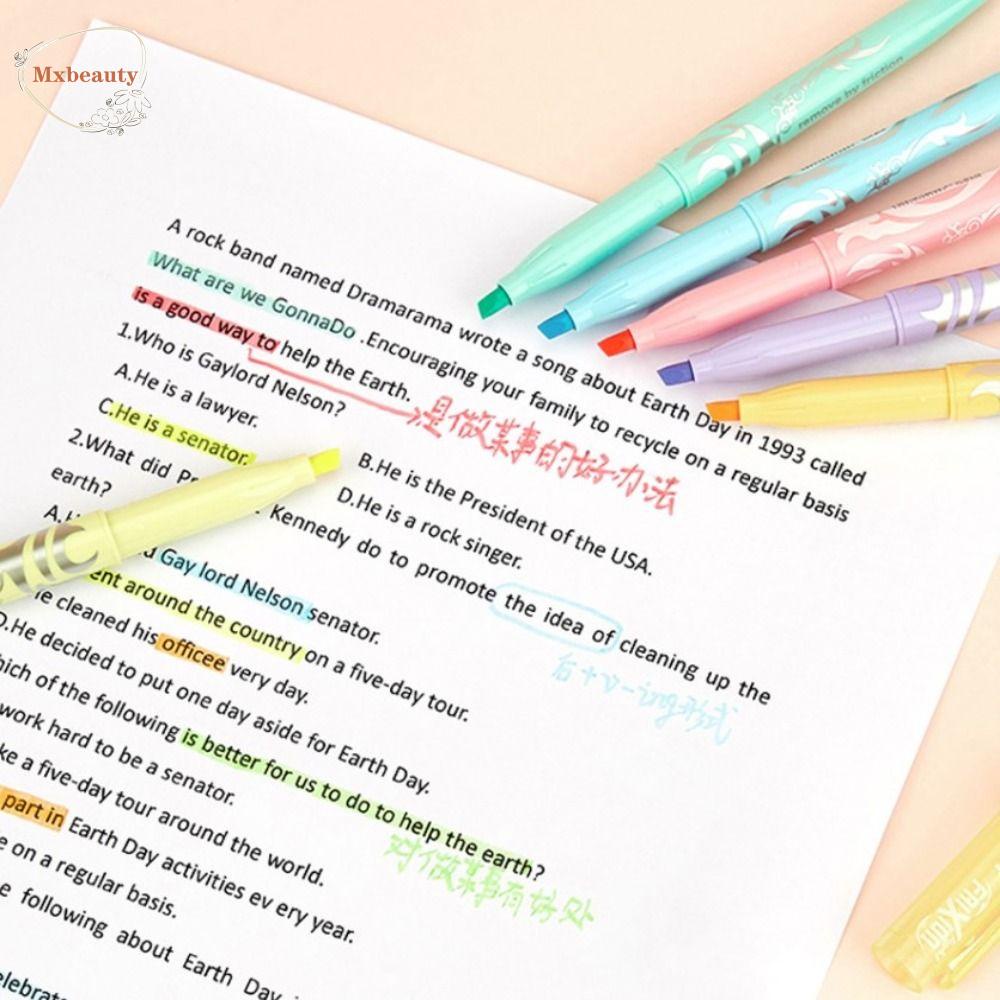 Mxbeauty
remove by friction
A rock band named Dramarama wrote a song about Earth Day in 1993 called
What are we GonnaDo .Encouraging your family to recycle on a regular basis
is a good way to help the Earth.
是做某事的好办法
1.Who is Gaylord Nelson?
A.He is a lawyer.
B.He is the President of the USA.
C.He is a senator.
D.He is a rock singer.
2.What did Kennedy do to promote the idea of cleaning up the
earth?
后+v-ing形式
Gay lord Nelson senator.
ent around the country on a five-day tour.
e cleaned his officee very day.
D.He decided to put one day aside for Earth Day.
hich of the following is better for us to do to help the earth?
对做某事有好处
work hard to be a senator.
ke a five-day tour around the world.
part in Earth Day activities ev ery year.
e on a regular basis.
e following about Earth Day
elebrate
FriXion